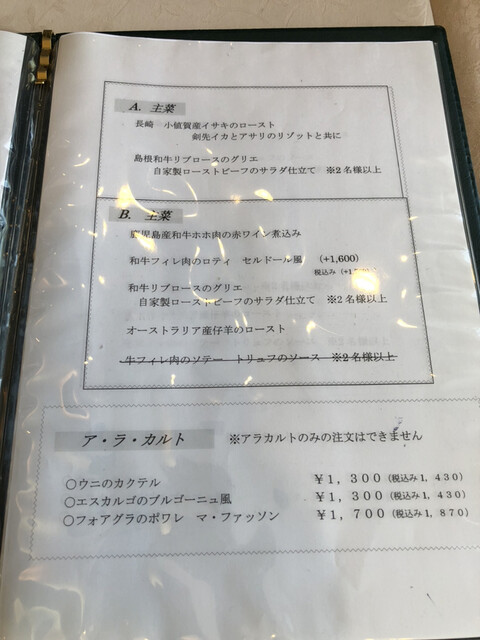 A. 主菜
長崎 小値賀産イサキのロースト
剣先イカとアサリのリゾットと共に
島根和牛リブロースのグリエ
自家製ローストビーフのサラダ仕立て ※2名様以上
B. 主菜
鹿児島産和牛ホホ肉の赤ワイン煮込み
和牛フィレ肉のロティ セルドール風 (+1,600)
税込み (+1,
和牛リブロースのグリエ
自家製ローストビーフのサラダ仕立て ※2名様以上
オーストラリア産仔羊のロースト
牛フィレ肉のソテー トリュフのソース ※2名様以上
ア・ラ・カルト ※アラカルトのみの注文はできません
○ウニのカクテル ¥1,300 (税込み1,430)
○エスカルゴのブルゴーニュ風 ¥1,300 (税込み1,430)
○フォアグラのポワレ マ・ファッソン ¥1,700 (税込み1,870)